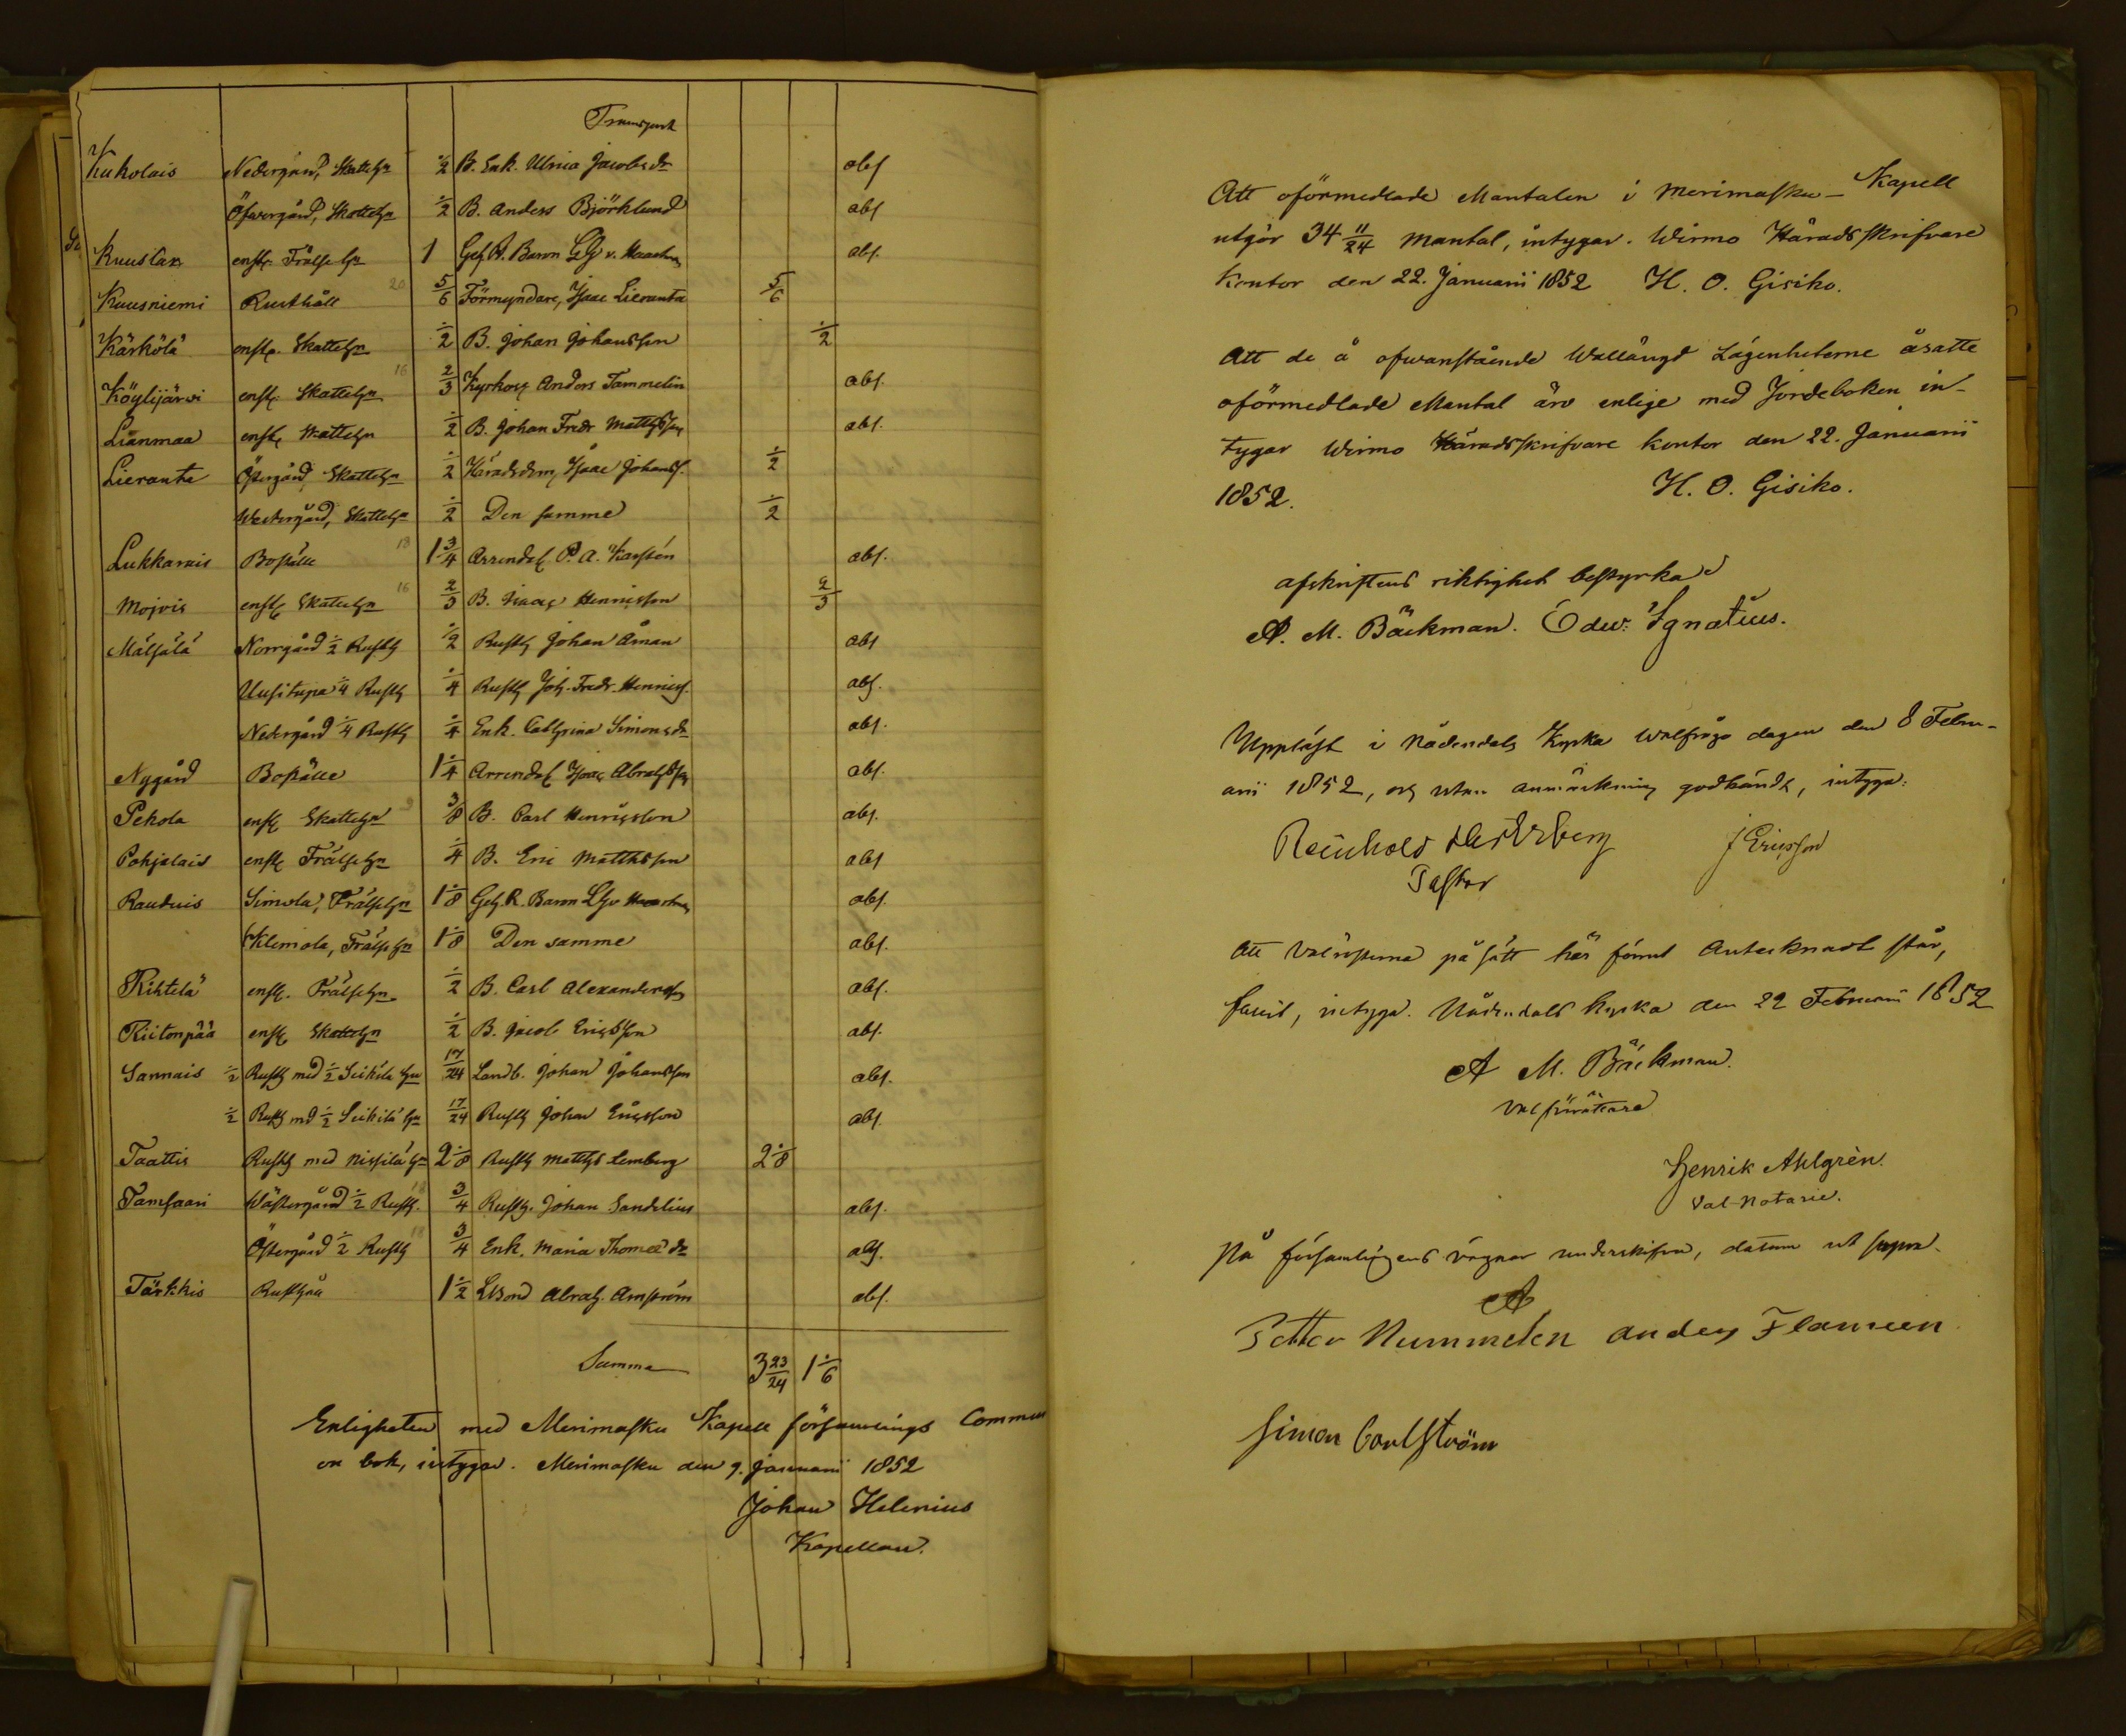 Transport
Kukolais Nedergård, Skattehn 1/2 B. Enk. Ulrica Jacobsdr abs
Öfwergård, Skattehn 1/2 B. Anders Björklund abs
Kuuslax ensk. Frälsehn 1 Baron abs.
Kuusniemi Rusthåll 20 5/6 Förmyndare, Isaac Lieranta 5/6
Kärkölä ensk. Skattehn 1/2 B. Johan Johansson 1/2
Köylijärvi ensk. Skattehn 16 2/3 Kyrkov. Anders Tammelin abs.
Liänmaa ensk. Skattehn 1/2 B. Johan Fredr Mattsson abs.
Lieranta Östergård Skattehn 1/2 Häradsdom. Isaac Johanss. 1/2
Westergård, Skattehn 1/2 Den samme 1/2
Lukkarais Boställe 18 1 3/4 Arrendat. P. A. Karstén abs.
Mojvis ensk. Skattehn 16 2/3 B. Isaac Henricsson 2/3
Mälsälä Norrgård 1/2 Rusth 1/2 Rusth Johan Åman abs
Uusitupa 1/4 Rusth 1/4 Rusth Joh. Fredr. Henricss. abs.
Nedergård 1/4 Rusth 1/4 Enk. Cathrina Simonsdr abs.
Nygård Boställe 1 1/4 Arrendat. Isaac Abrahsson abs.
Pekola ensk Skattehn 9 3/8 B. Carl Henricsson abs.
Pohjalais ensk Frälsehn 1/4 B. Eric Matthsson abs
Rauduis Simola, Frälsehn 1 1/8 Baron abs.
Klemola, Frälsehn 1 1/8 Den samme abs.
Rihtelä ensk. Frälsehn 1/2 B. Carl Alexandersson abs.
Riitonpää ensk Skattehn 1/2 B. Jacob Ericsson abs.
Sannais 1/2 Rusth med 1/2 Seikilä hn 17/24 Landb. Johan Johansson abs.
1/2 Rusth med 1/2 Seikilä hn 17/24 Rusth Johan Ericsson abs.
Taattis Rusth med Nissilä hn 2 1/8 Rusth Matths Lemberg 2 1/8
Tamsaari Wästergård 1/2 Rusth. 3/4 Rusth. Johan Sandelius abs.
Östergård 1/2 Rusth 18 3/4 Enk. Maria Thomædr abs.
Tärkkis Rusthåll 1 1/2 Abrah. Amström abs.
Summa 3 23/24 1 1/6
Enligheten med Merimasku Kapell församlings Commun
on bok, intygar. Merimasku den 9. Januarii 1852
Johan Helenius
Kapellan.
Att oförmedlade Mantalen i Merimasku - Kapell
utgör 34 11/24 Mantal, intygar. Wirmo Häradsskrifvare
Kontor den 22. Januarii 1852 H. O. Gisiko.
Att de å ofwanstående Wallängd Lägenheterne åsatte
oförmedlade Mantal äro enlige med Jordeboken in-
tygar Wirmo Häradsskrifvare kontor den 22. Januarii
1852. H. O. Gisiko.
afskriftens riktighet bestyrka
A. M. Bäckman. Edw: Ignatius.
Uppläst i Nådendals Kyrka walfråga dagen den 8 Febru-
arii 1852, och utan anmärkning godkändt, intyga:
Reinhold J Ericsson
Pastor
Att Valrösterna på sätt här förut Antecknadt står,
intyga. Nådendals kyrka den 22 Februarii 1852
A M. Bäckman.
Valförrättare
Henrik Ahlgrèn.
Val-Notarie.
På församlingens vägnar underskrifva, datum ut supra.
Petter Nummelin Anders Flameen
Simon Carlström